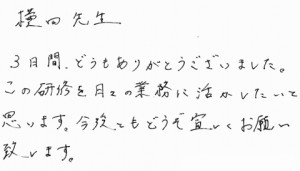 横田先生
3日間、どうもありがとうございました。
この研修を日々の業務に活かしたいと
思います。今後ともどうぞ宜しくお願い
致します。